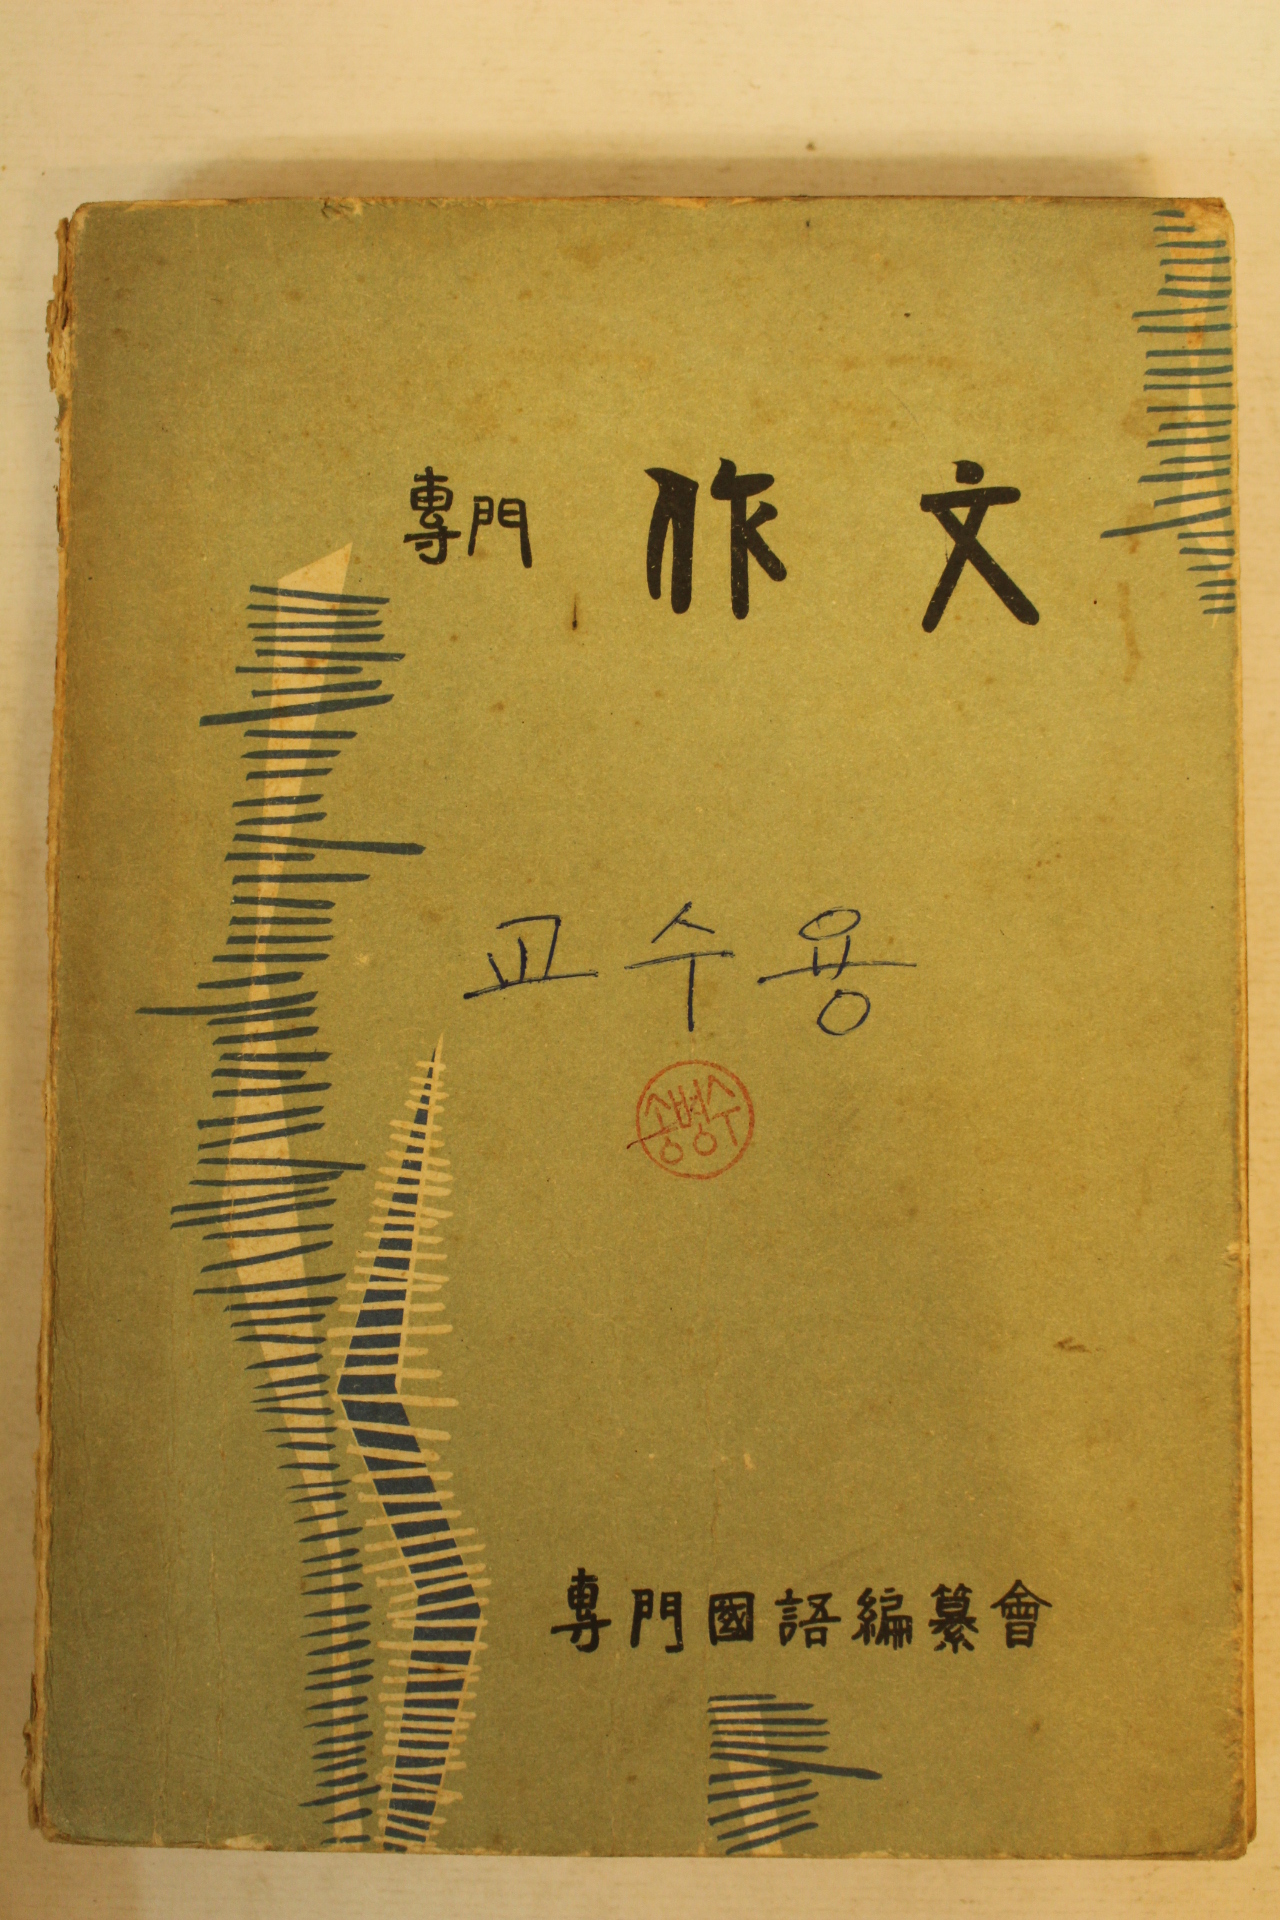 專門 作文
교수용
송병수
專門國語編纂會